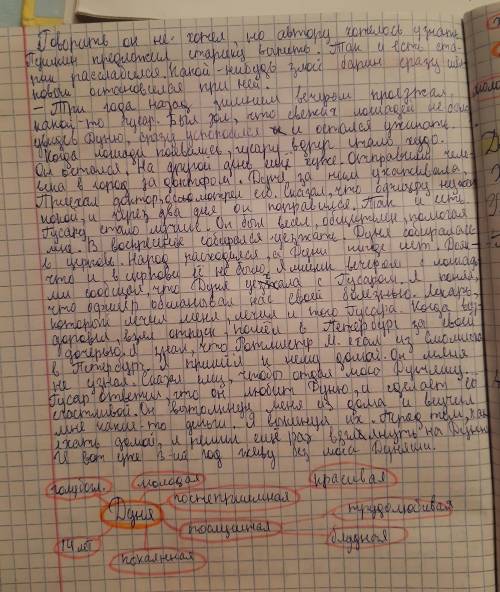 Говорить он не хотел, но автору хотелось узнать.
Пушкин предложил старику выпить. Так и есть ста-
рик расслабился. Какой-нибудь злой барин сразу
новой остановился при ней.
- Три года назад зимним вечером проезжал
какой-то гусар. Был зол, что свежих лошадей не было
увидев Дуню, сразу успокоился и остался ужинать.
Когда лошади появились, гусару вдруг стало худо.
Он остался. На другой день ещё хуже. Отправили чело-
века в город за доктором. Дуня за ним ухаживала.
Приехал доктор, осмотрел его. Сказал, что
покой, и через два дня он поправился. Так и есть
Гусару стало лучше. Он был весел, общителен, помогал
мне. В воскресенье собирался уезжать. Дуня собиралась
в церковь. Народ расходился, а Дуни нигде нет.
что и в церкви её не было. Ямщик вечером с лошадь-
ми сообщил, что Дуня уехала с Гусаром. Я понял,
что офицер обманывал нас своей болезнью. Лекарь,
который лечил меня, лечил и того Гусара. Когда вы-
здоровел, взял отпуск, пошёл в Петербург за своей
дочерью. Я узнал, что Ротмистр М. ехал из Смоленска
в Петербург. Я пришёл к нему домой. Он меня
не узнал. Сказал ему, чтобы отдал мою Дунечку.
Гусар ответил, что он любит Дуню, и сделает её
счастливой. Он вытолкнул меня из дома и всучил
мне какие-то деньги. Я выкинул их. Перед тем, как
ехать домой, я решил ещё раз взглянуть на Дуню.
И вот уже 3-ий год живу без моей Дуняши.
голубогл. молодая красивая
гостеприимная
Дуня трудолюбивая
послушная
14 лет блудная
покаянная